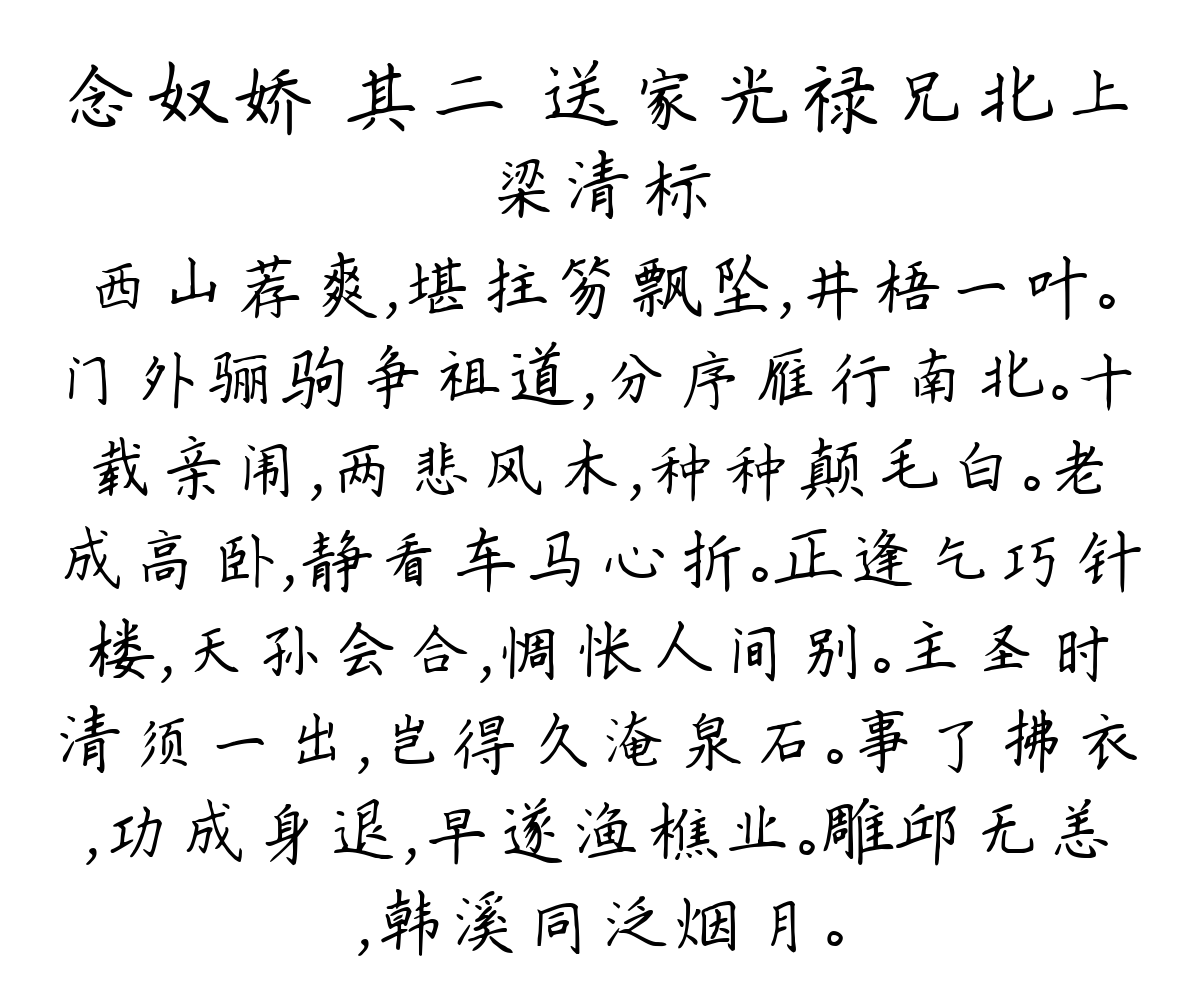 念奴娇 其二 送家光禄兄北上
梁清标
西山荐爽,堪拄笏飘坠,井梧一叶。
门外骊驹争祖道,分序雁行南北。十
载亲闱,两悲风木,种种颠毛白。老
成高卧,静看车马心折。正逢乞巧针
楼,天孙会合,惆怅人间别。主圣时
清须一出,岂得久淹泉石。事了拂衣
,功成身退,早遂渔樵业。雕邱无恙
,韩溪同泛烟月。